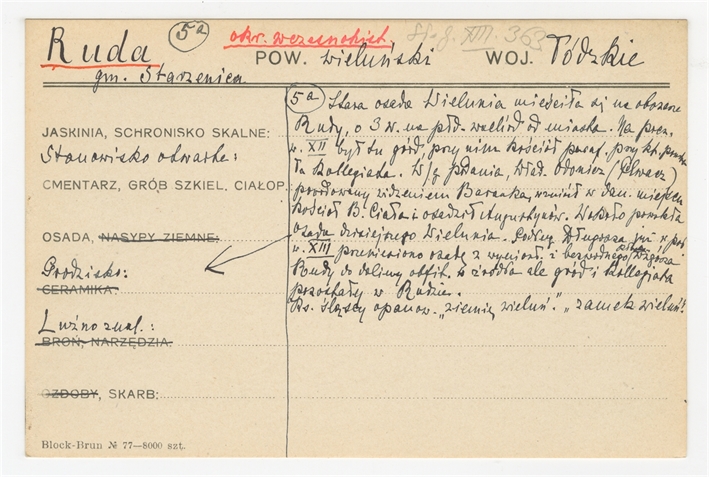 Ruda 5a okr. wczesnohist. Sł. g. XIII. 363
POW. wieluński WOJ. Łódzkie
gm. Starzenice
JASKINIA, SCHRONISKO SKALNE:
Stanowisko otwarte:
CMENTARZ, GRÓB SZKIEL, CIAŁOP.:
OSADA, NASYPY ZIEMNE:
Grodzisko:
CERAMIKA:
Luźno znal.:
BROŃ, NARZĘDZIA:
OZDOBY, SKARB:
5a Stara osada Wielunia mieściła się na obszarze
Rudy, o 3 w. na płd. wschód od miasta. Na pocz.
w. XII był tu gród, przy nim kościół paraf. przy kt. powsta
ła kollegiata. W/g podania, Wład. Odonicz (Plwacz)
powodowany widzeniem Baranka, wzniósł w dan. miejscu
kościół B. Ciała i osadził Augustynów. Wokoło powstała
osada dzisiejszego Wielunia. Podług Długosza już w poł
w. XIII przeniesiono osadę z wyniosł. i bezwodnego wzgórza
Rudy do doliny obfit. w źródła ale gród i kollegiata
pozostały w Rudzie.
Ks. śląscy opanow. "ziemię wieluń." "zamek wieluń".
Block-Brun № 77—8000 szt.